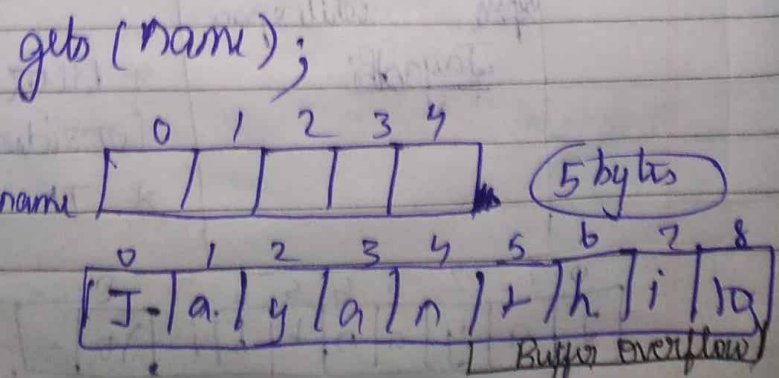 gets (name);
0 1 2 3 4
name 5 bytes
0 1 2 3 4 5 6 7 8
J a y a n t h i \0
Buffer overflow